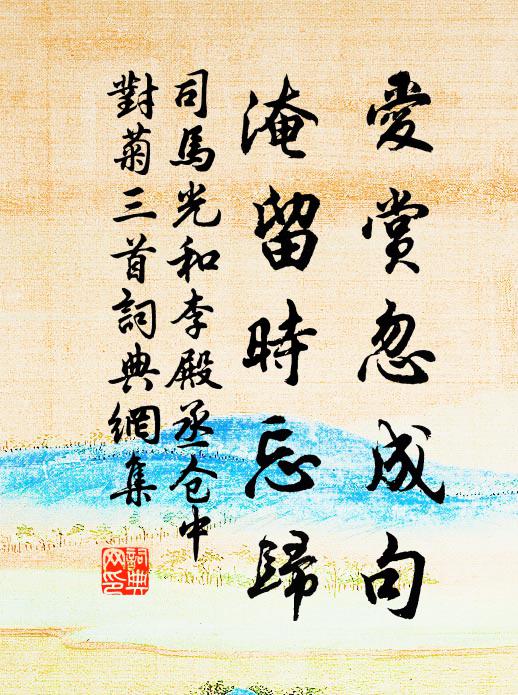 愛賞忽成句
淹留時忘歸
司馬光和李殿丞仓中
對菊三首詞典網集
詞典网印